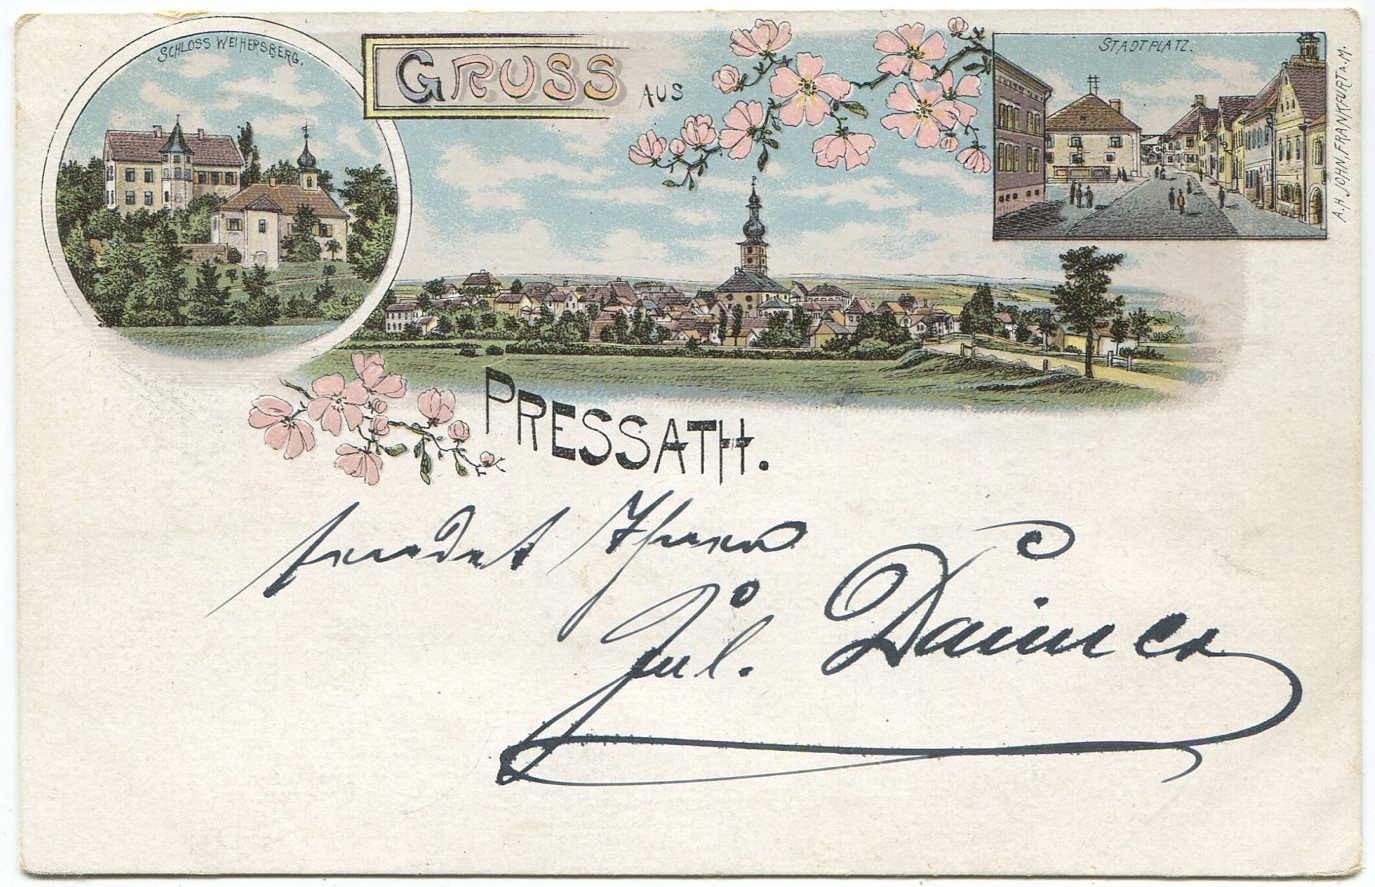 SCHLOSS WEIHERSBERG.
GRUSS AUS
STADTPLATZ.
A.H. JOHN, FRANKFURT A. M.
PRESSATH.
sendet Ihnen
Jul.